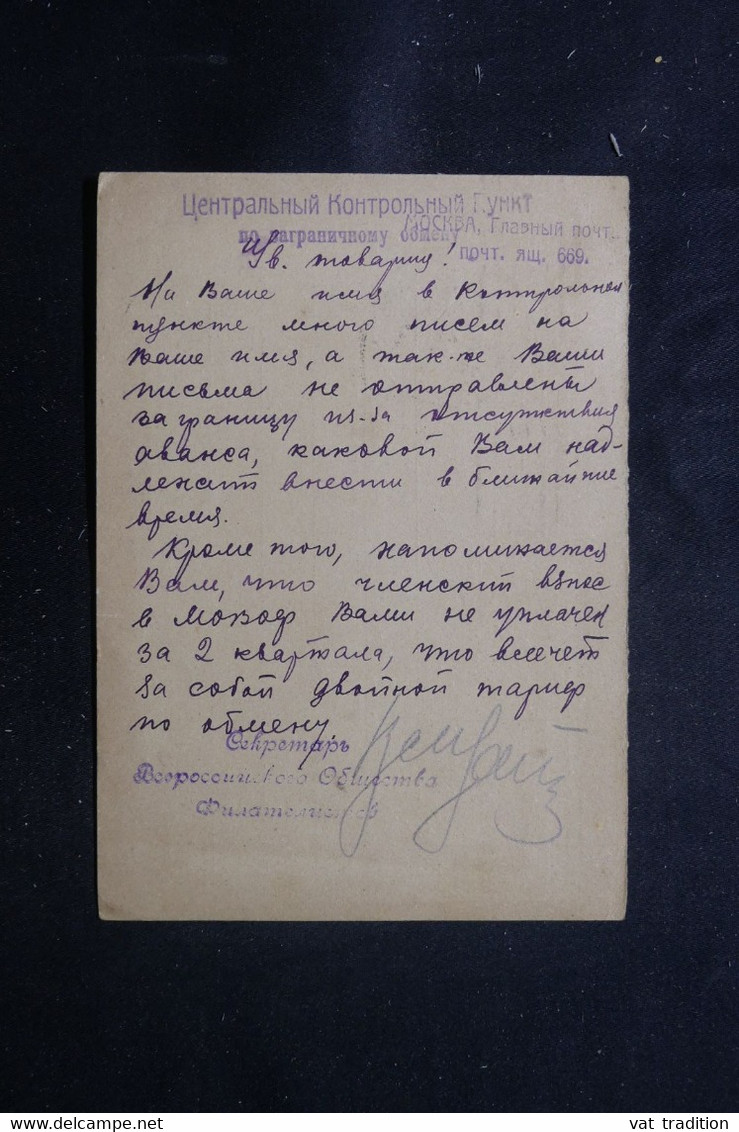 Центральный Контрольный Пункт
по заграничному обмену
МОСКВА, Главный почт.
почт. ящ. 669.
Ув. товарищ!
На Ваше имя в Контрольном
пункте много писем на
Ваше имя, а так-же Ваши
письма не отправлены
заграницу из-за отсутствия
аванса, каковой Вам над-
лежит внести в ближайшие
время.
Кроме того, напоминается
Вам, что членский взнос
в МОВОФ Вами не уплачен
за 2 квартала, что влечет
за собой двойной тариф
по обмену.
Секретарь
Всероссийского Общества
Филателистов
vat tradition